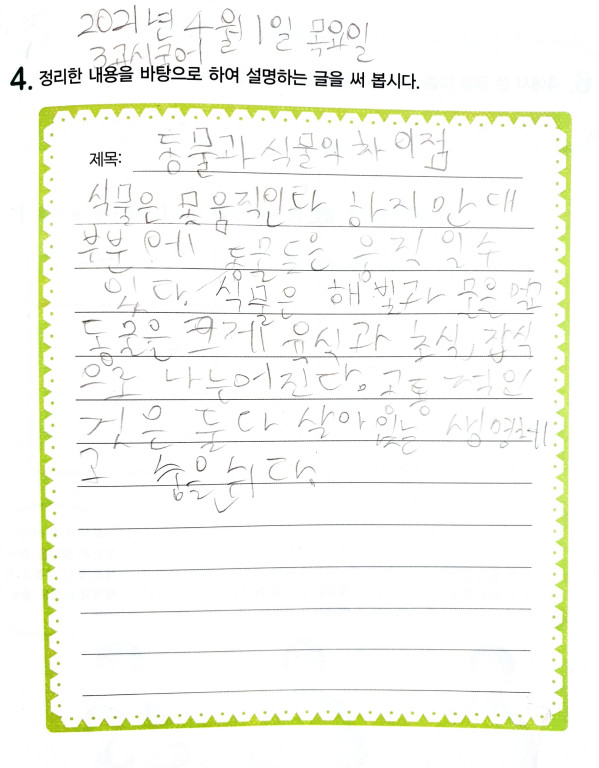 2021년 4월 1일 목요일
3교시국어
4. 정리한 내용을 바탕으로 하여 설명하는 글을 써 봅시다.
제목: 동물과 식물의 차이점
식물은 못 움직인다 하지만 대
부분에 동물들은 움직일수
있다. 식물은 햇빛과 물을 먹고
동물은 크게 육식과 초식, 잡식
으로 나눈어진다. 공통적인
것은 둘다 살아있는 생명체
고 숨을 쉰다.